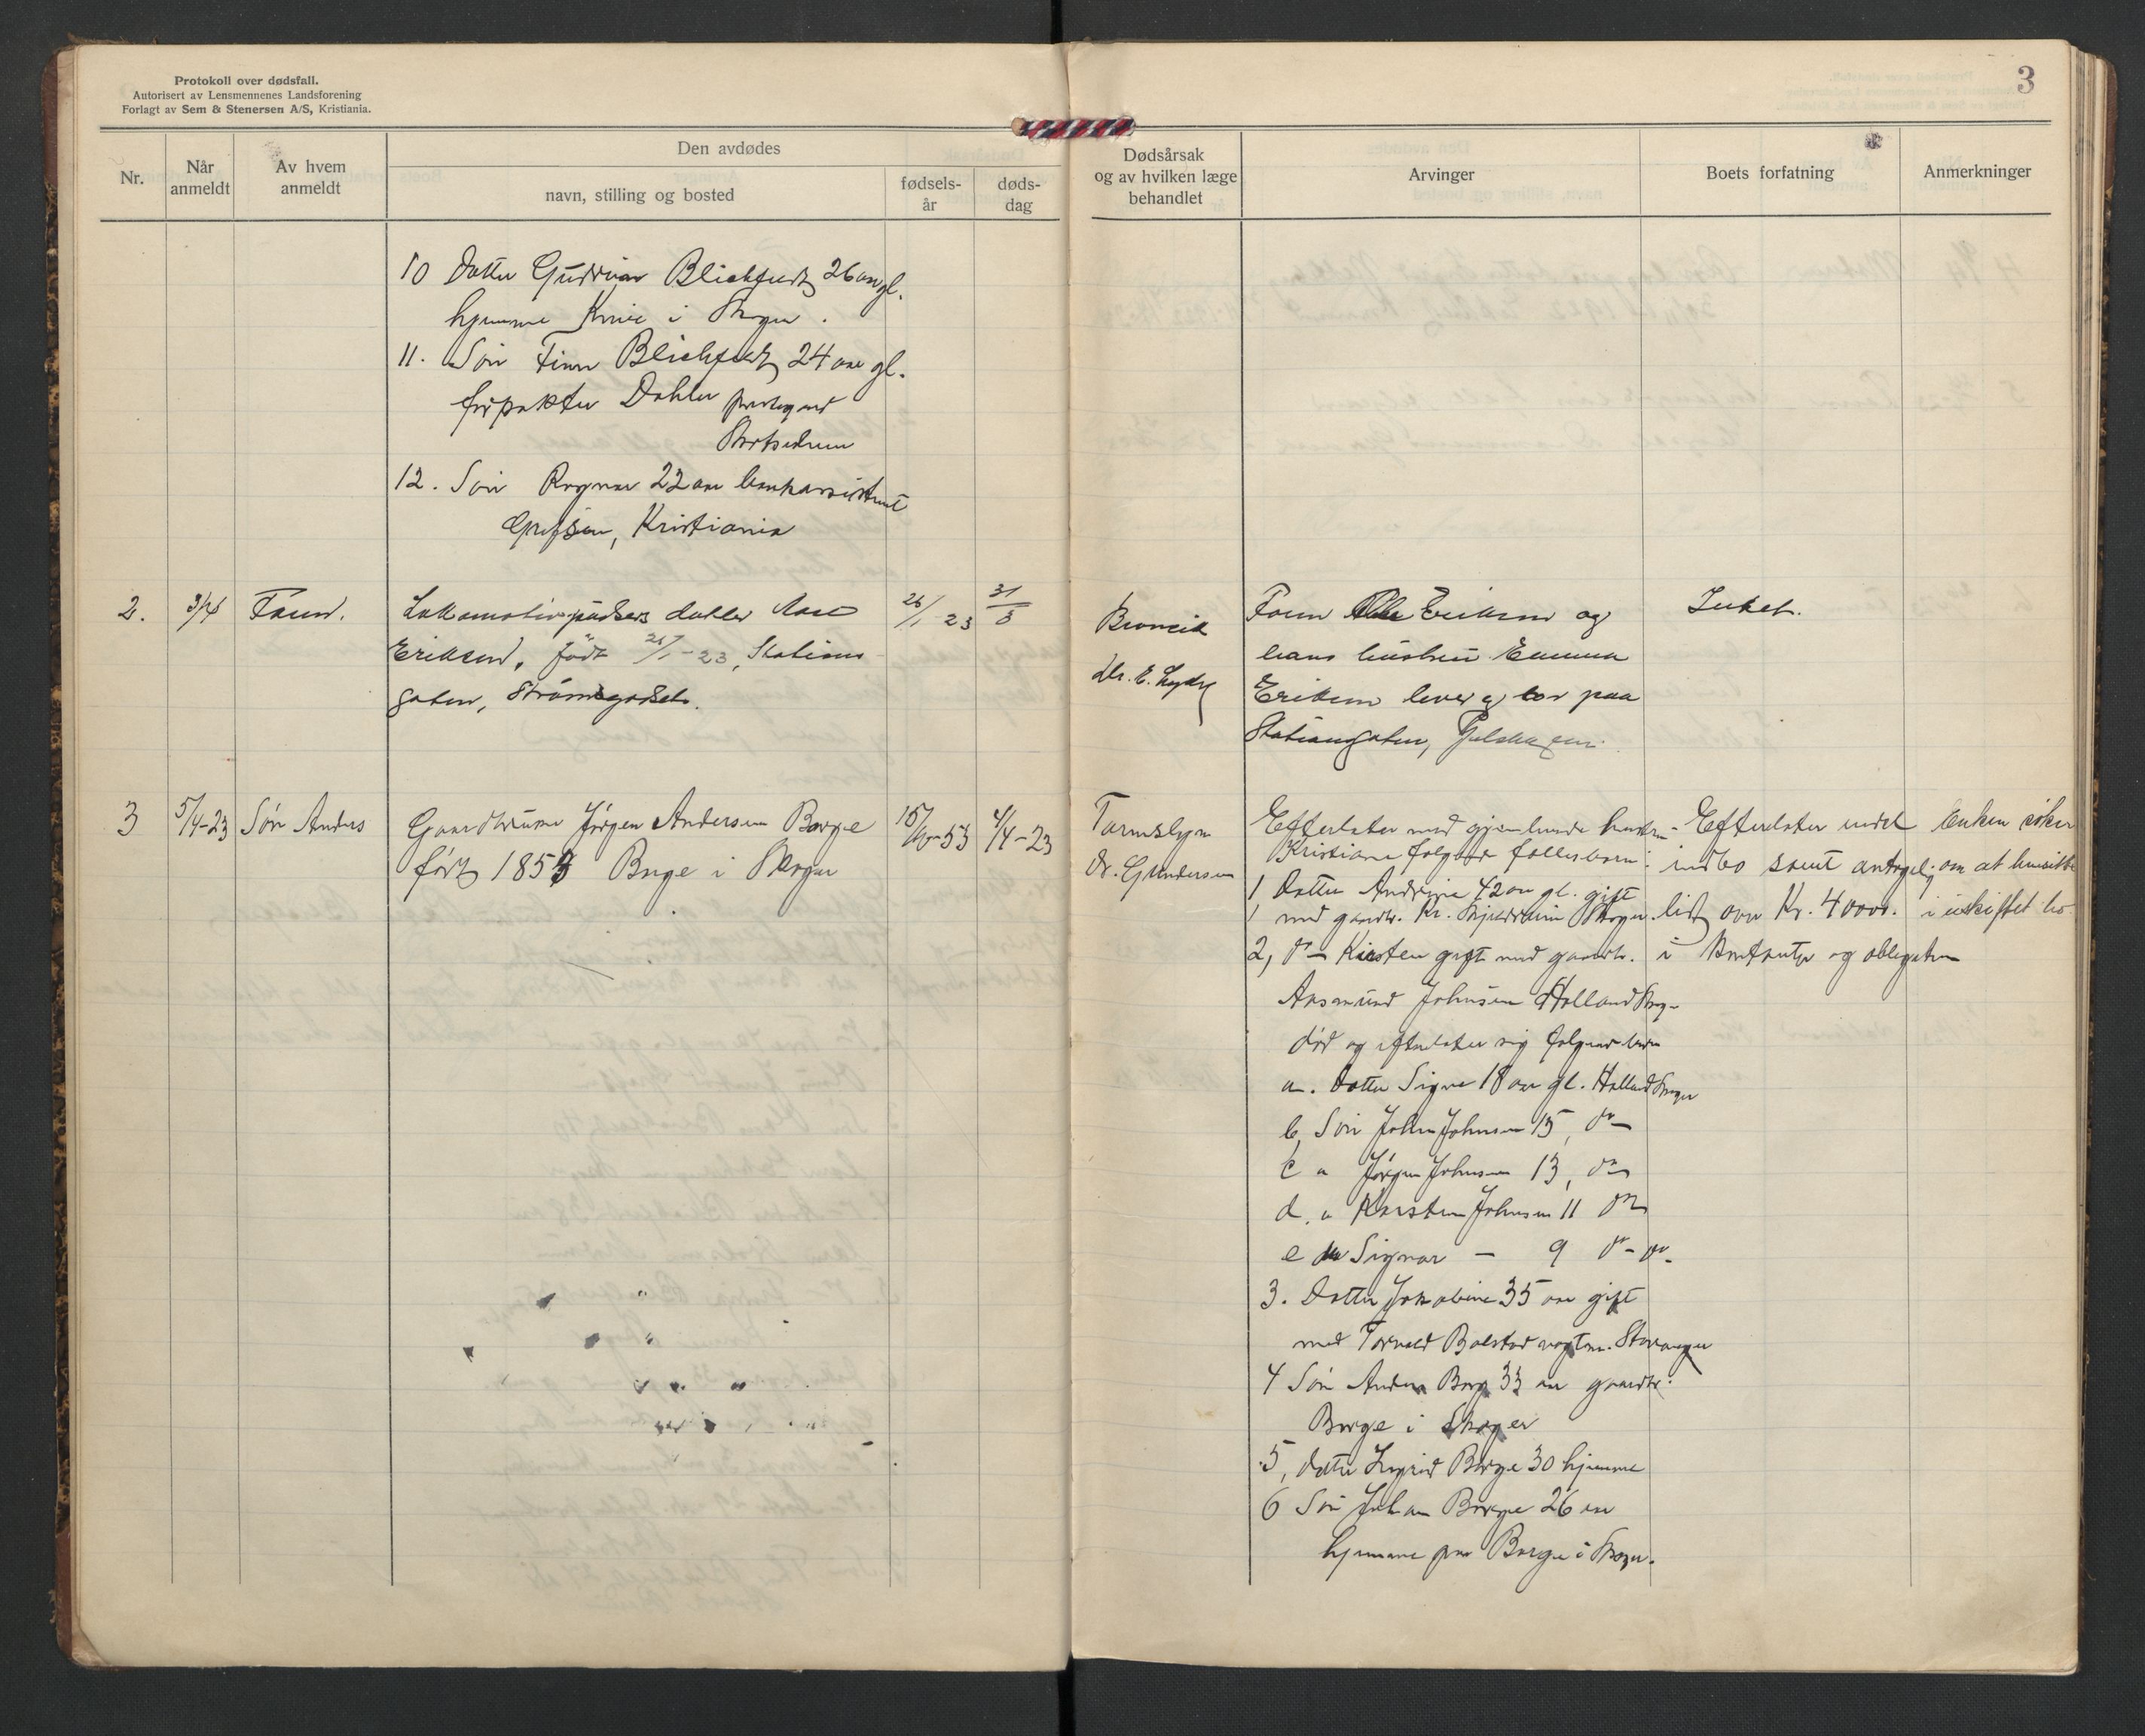 Protokoll over dødsfall.
Autorisert av Lensmennenes Landsforening
Forlagt av Sem & Stenersen A/S, Kristiania.
3
Nr.
Når anmeldt
Av hvem anmeldt
Den avdødes
navn, stilling og bosted
fødsels-år
døds-dag
Dødsårsak og av hvilken læge behandlet
Arvinger
Boets forfatning
Anmerkninger
10 Datter Gudrun Blichfeldt 26 aar gl.
hjemme i Skoger.
11. Søn Finn Blichfeldt 24 aar gl.
forpakter Dahler prestegaard
12. Søn Ragnar 22 aar bankassistent
Grefsen, Kristiania
2.
3/4
Faren.
Lokomotivpudsers datter Aase
Eriksen, født 26/1-23, Stations
gaten, Strømsgodset.
26/1 23
31/3
Dr. E.
Faren Eriksen og
hans hustru Emma
Eriksen lever og bor paa
Stationsgaten,
Intet.
3
5/4-23
Søn Anders
Gaardbruker Jørgen Andersen Borge
født 1853 Borge i Skoger
53
4/4-23
Tarmslyng
Dr. Gundersen
Efterlater med gjenlevende hustru
Kristiane følgende fællesbarn:
1 Datter 42 aar gl. gift
med gaardbr. Kr. Skoger.
2, do Kirsten gift med gaardbr.
Aasmund Johnsen Holland Skog-
død og efterlater sig følgende barn
a. Datter Signe 18 aar gl. Holland Skoger
b, Søn John Johnsen 15, do
c " Jørgen Johnsen 13, do
d. " Karsten Johnsen 11 do
e Sigvar - 9 do - do
3. Datter Jakobine 35 aar gift
med Torvald Bolstad Stavanger
4 Søn Anders Borge 33 aar gaardbr.
Borge i Skoger
5, datter Ingrid Borge 30 hjemme
6 Søn Johan Borge 26 aar
hjemme paa Borge i Skoger.
Efterlater indbo samt antagelig over Kr. 40000.
i og obligationer
Enken søker
om at hensitte
i uskiftet bo